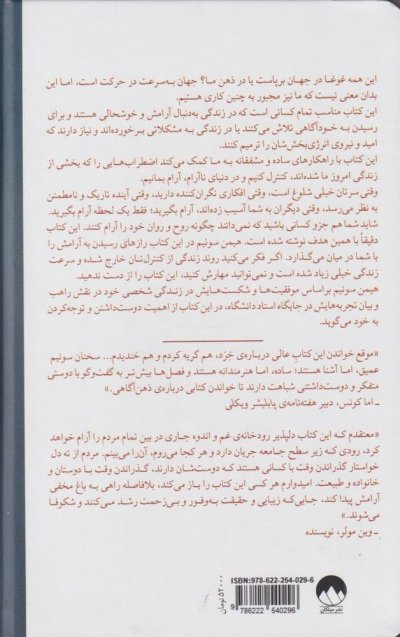 این همه غوغا در جهان برپاست یا در ذهن ما؟ جهان به‌سرعت در حرکت است، اما این
بدان معنی نیست که ما نیز مجبور به چنین کاری هستیم.
این کتاب مناسب تمام کسانی است که در زندگی به‌دنبال آرامش و خوشحالی هستند و برای
رسیدن به خودآگاهی تلاش می‌کنند یا در زندگی به مشکلاتی برخورده‌اند و نیاز دارند که
امید و نیروی انرژی‌بخش‌شان را ترمیم کنند.
این کتاب با راهکارهای ساده و مشفقانه به ما کمک می‌کند اضطراب‌هایی را که بخشی از
زندگی امروز ما شده‌اند، کنترل کنیم و در دنیای ناآرام، آرام بمانیم.
وقتی سرتان خیلی شلوغ است، وقتی افکاری نگران‌کننده دارید، وقتی آینده تاریک و نامطمئن
به نظر می‌رسد، وقتی دیگران به شما آسیب زده‌اند، آرام بگیرید؛ فقط یک لحظه آرام بگیرید.
شاید شما هم جزو کسانی باشید که نمی‌دانند چگونه روح و روان خود را آرام کنند. این کتاب
دقیقاً با همین هدف نوشته شده است. هیمن سونیم در این کتاب رازهای رسیدن به آرامش را
با شما در میان می‌گذارد. اگر فکر می‌کنید روند زندگی از کنترل‌تان خارج شده و سرعت
زندگی خیلی زیاد شده است و نمی‌توانید مهارش کنید، این کتاب را از دست ندهید.
هیمن سونیم براساس موفقیت‌ها و شکست‌هایش در زندگی شخصی خود در نقش راهب
و بیان تجربه‌هایش در جایگاه استاد دانشگاه، در این کتاب از اهمیت دوست‌داشتن و توجه‌کردن
به خود می‌گوید.
«موقع خواندن این کتاب عالی درباره‌ی خِرَد، هم گریه کردم و هم خندیدم... سخنان سونیم
عمیق، اما آشنا هستند؛ ساده، اما هنرمندانه هستند و فصل‌ها بیش‌تر به گفت‌وگو با دوستی
متفکر و دوست‌داشتنی شباهت دارند تا خواندن کتابی درباره‌ی ذهن‌آگاهی.»
ـ اما کونس، دبیر هفته‌نامه‌ی پابلیشر ویکلی
«معتقدم که این کتاب دلپذیر رودخانه‌ی غم و اندوه جاری در بین تمام مردم را آرام خواهد
کرد، رودی که زیر سطح جامعه جریان دارد و هر کجا می‌روم، آن‌را می‌بینم. مردم از ته دل
خواستار گذراندن وقت با کسانی هستند که دوست‌شان دارند، گذراندن وقت با دوستان و
خانواده و طبیعت. امیدوارم هر کسی این کتاب را باز می‌کند، بلافاصله راهی به باغ مخفی
آرامش پیدا کند، جایی‌که زیبایی و حقیقت به‌وفور و بی‌زحمت رشد می‌کنند و شکوفا
می‌شوند.»
ـ وین مولر، نویسنده
ISBN: 978-622-254-029-6
۵۲۰۰۰ تومان
9 786222 540296
نشر میلکان